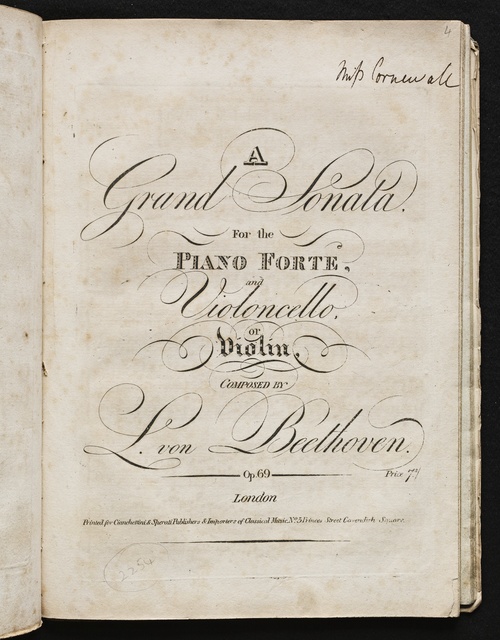 4
Miſs Cornewall
A
Grand Sonata.
For the
PIANO FORTE,
and
Violoncello,
or
Violin,
COMPOSED BY
L. von Beethoven.
Op. 69
Price 7s/
London
Printed for Cianchettini & Sperati Publishers & Importers of Classical Music, No. 5 Princes Street Cavendish Square.
2254